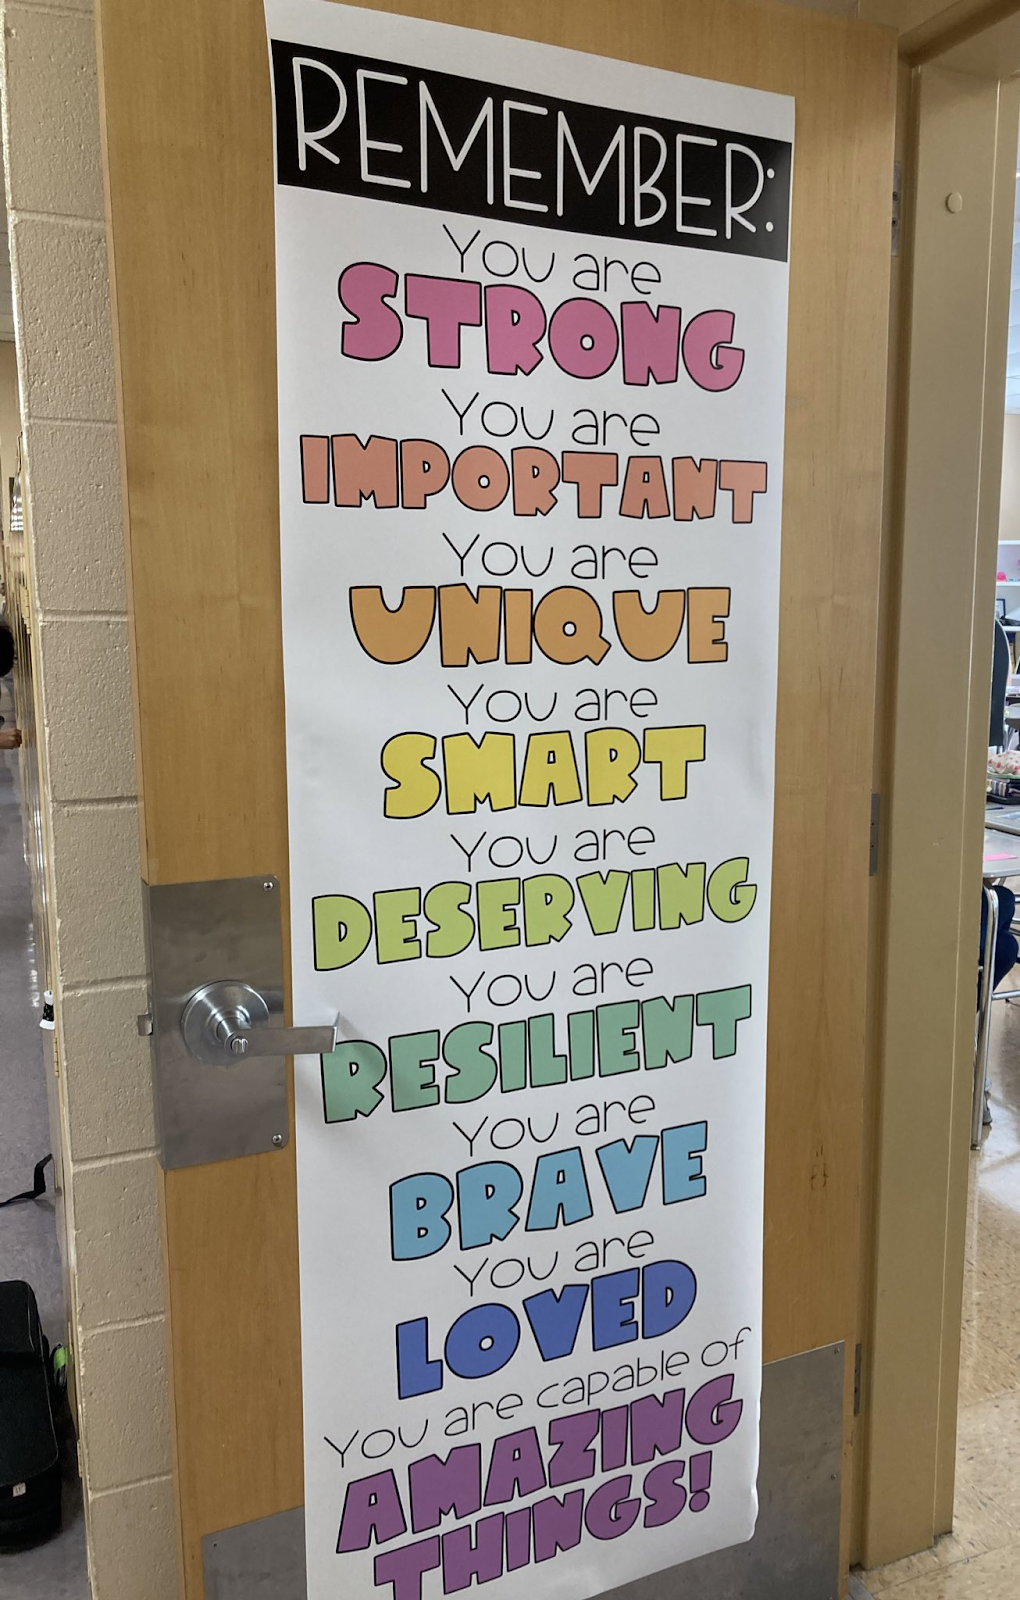 REMEMBER:
You are
STRONG
You are
IMPORTANT
You are
UNIQUE
You are
SMART
You are
DESERVING
You are
RESILIENT
You are
BRAVE
You are
LOVED
You are capable of
AMAZING
THINGS!